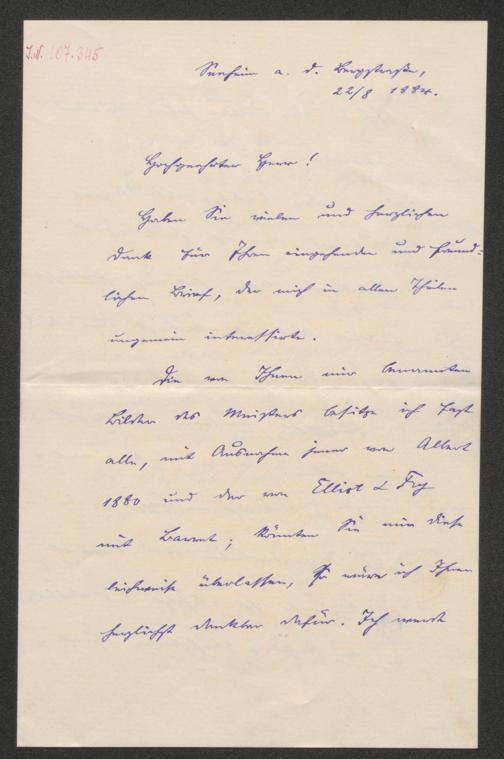 J.N. 107.345
Seeheim a. d. Bergstraße,
22/8 1884.
Hochgeehrter Herr!
Haben Sie vielen und herzlichen
Dank für Ihren eingehenden und freund-
lichen Brief, der mich in allen Theilen
ungemein interessirte.
Die von Ihnen mir benannten
Bilder des Meisters besitze ich fast
alle, mit Ausnahme jener von Albert
1880 und der von Elliot & Fry
mit Barret; könnten Sie mir diese
leihweise überlassen, so wäre ich Ihnen
herzlichst dankbar dafür. Ich werde